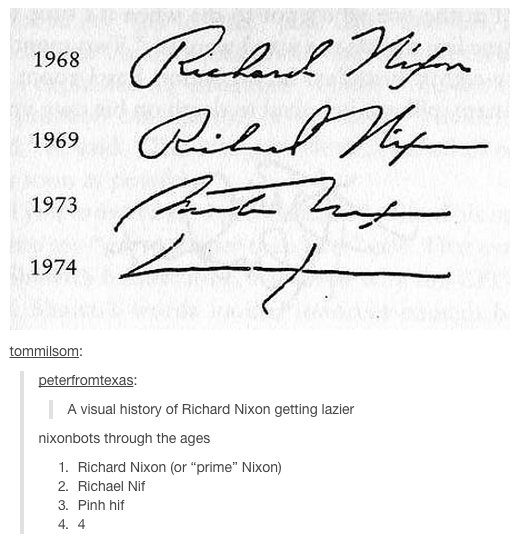 1968 Richard Nixon
1969
1973
1974
tommilsom:
peterfromtexas:
A visual history of Richard Nixon getting lazier
nixonbots through the ages
1. Richard Nixon (or “prime” Nixon)
2. Richael Nif
3. Pinh hif
4. 4